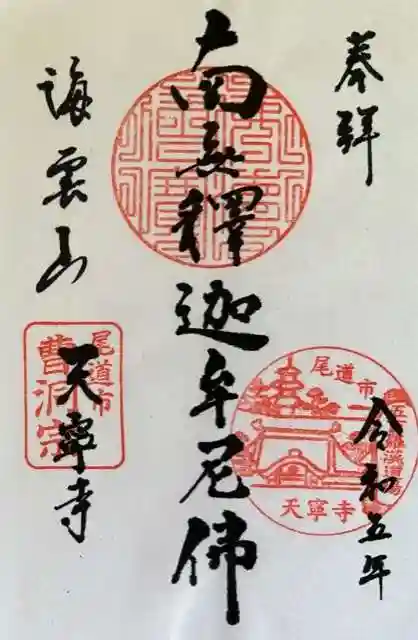 奉拝
令和五年
南無釋迦牟尼佛
海雲山
天寧寺
尾道市
曹洞宗
尾道市
五百羅漢道場
天寧寺